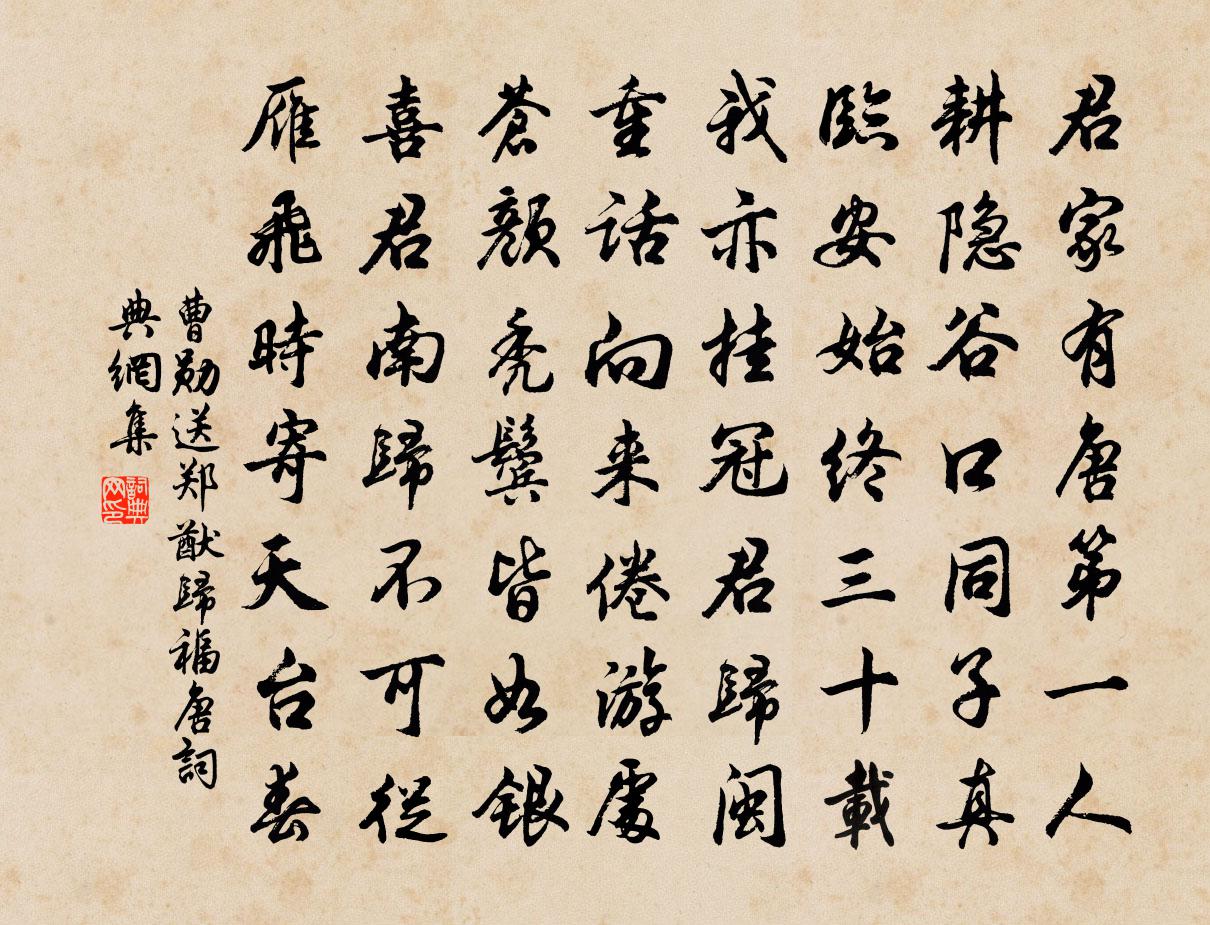 君家有唐第一人
耕隐谷口同子真
臨安始终三十載
我亦挂冠君歸闽
重话向来倦游處
蒼顏秃鬓皆如銀
喜君南歸不可從
雁飛時寄天台春
曹勛送郑猷歸福唐詞
典網集
詞典
网印